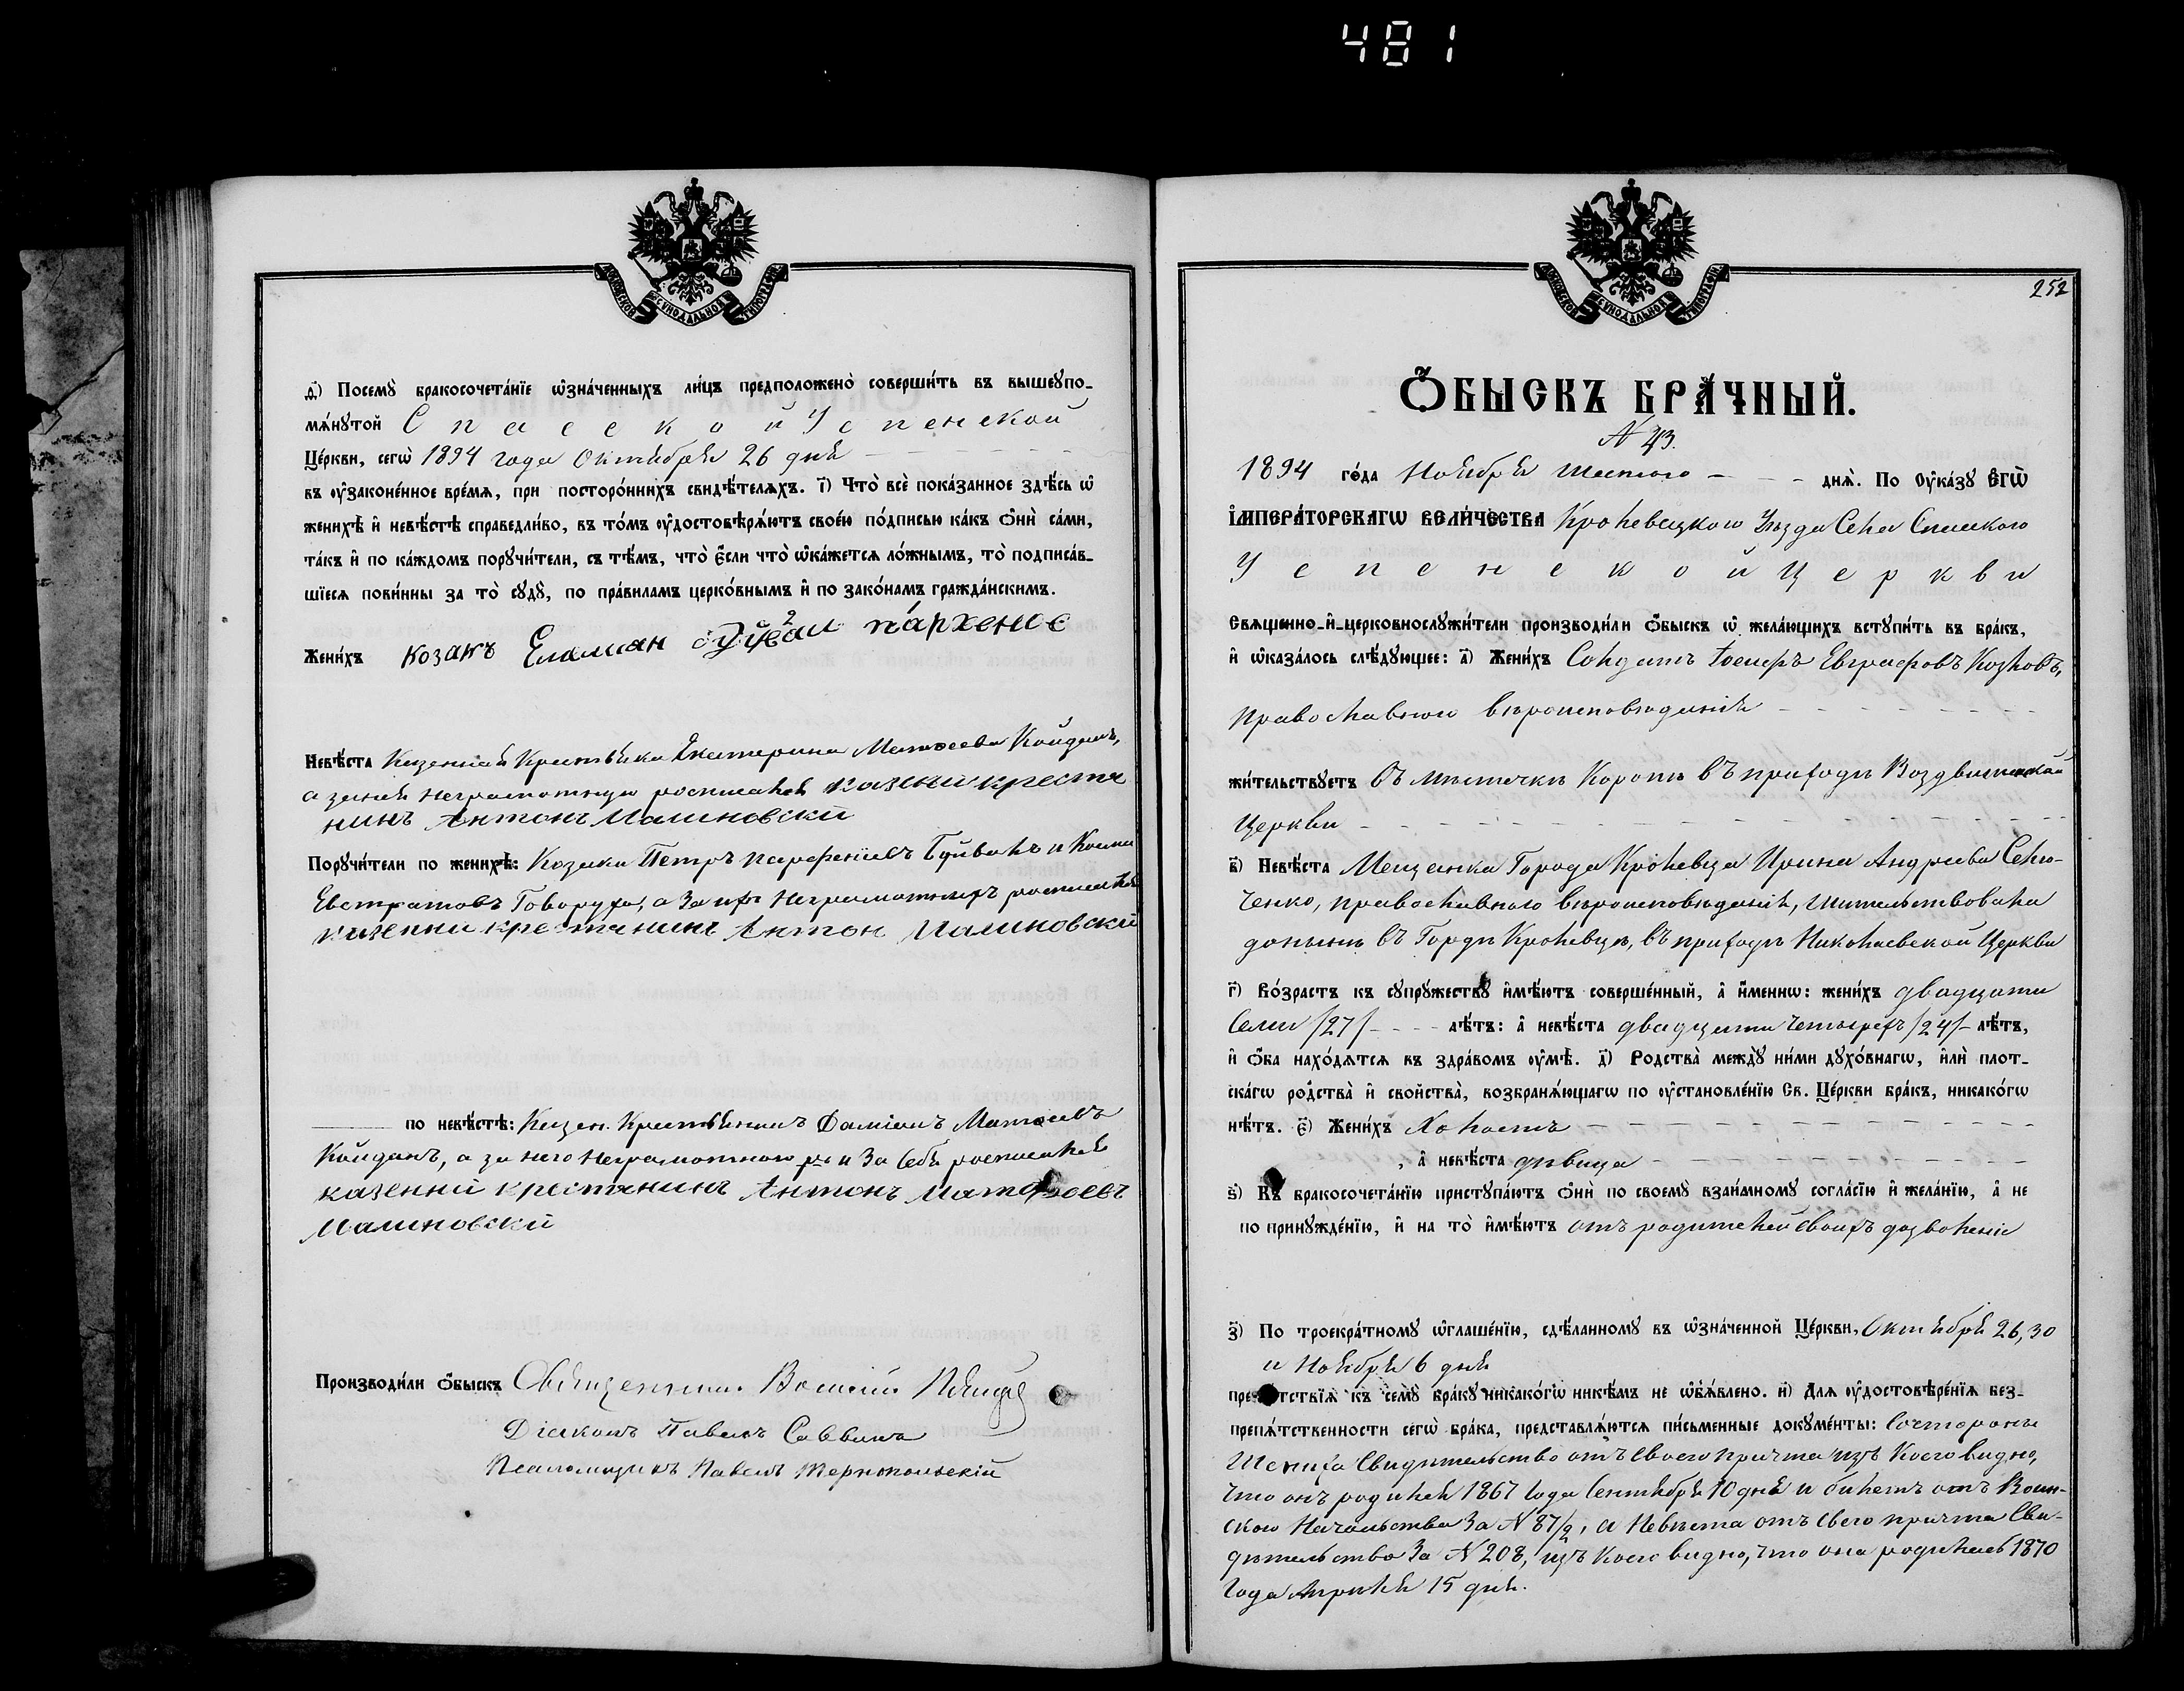 481
МОСКОВСКОЙ СѴНОДАЛЬНОЙ ТИПОГРАФІИ
д҃і) Посемꙋ̀ бракосочета́нїе ѡ҆зна́ченныхъ ли́цъ предположено̀ соверши́ть въ вышеꙋпо-
мѧ́нꙋтой Спасской Успенской
Це́ркви, сегѡ̀ 1894 года Октября 26 дня
въ ᲂу҆законе́нное вре́мѧ, при посторо́ннихъ свидѣ́телѧхъ. і҃) Что̀ всѐ пока́занное здѣ́сь ѡ҆
женихѣ̀ и҆ невѣ́стѣ справедли́во, въ то́мъ ᲂу҆достовѣрѧ́ютъ свое́ю по́дписью ка́къ ѻ҆нѝ са́ми,
та́къ и҆ по ка́ждомъ порꙋчи́тели, съ тѣ́мъ, что̀ є҆́сли что̀ ѡ҆ка́жетсѧ ло́жнымъ, то̀ подписа́в-
шїесѧ пови́нны за то̀ сꙋдꙋ̀, по пра́виламъ церко́внымъ и҆ по зако́намъ гражда́нскимъ.
Жени́хъ козакъ Емамиан пархение
Невѣ́ста Казенная Крестьянка Екатерина Матвеева Кайданъ,
а за нея неграмотную росписался казеный крестя
нинъ Антонъ Малиновскй
Порꙋчи́тели по женихѣ̀: Козаки Петръ Парфеніевъ Буйвалъ и Косма
Евстратовъ Говоруха, а за ихъ неграмотныхъ росписался
казенни крестянинъ Антон Малиновский
по невѣ́стѣ: Казен. Крестьянинъ Даміанъ Матвеевъ
Кайданъ, а за него неграмотного и за себя росписался
казенни крестянинъ Антонъ Матфеевъ
Малиновскй
Производи́ли ѻ҆́быскъ Священникъ Василій
Діаконъ Павелъ Саввичъ
Псаломщикъ Павелъ Тернопольскій
МОСКОВСКОЙ СѴНОДАЛЬНОЙ ТИПОГРАФІИ
252
Ѻ҆́БЫСКЪ БРА́ЧНЫЙ.
N 43.
1894 го́да Ноября Шестого днѧ̀. По ᲂу҆ка́зꙋ Є҆ГѠ̀
І҆МПЕРА́ТОРСКАГѠ ВЕЛИ́ЧЕСТВА Кролевецкого Уѣзда Села Спаского
Успенской Церкви
Свѧще́нно-и҆-церковнослꙋжи́тели производи́ли ѻ҆́быскъ ѡ҆ жела́ющихъ встꙋпи́ть въ бра́къ,
и҆ ѡ҆каза́лось слѣ́дꙋющее: а҃) Жени́хъ Солдатъ Іосифъ Евграфовъ Козловъ,
православного вѣроисповѣданія
жи́тельствꙋетъ въ мѣстечкѣ Коропѣ въ приходѣ Воздвиженской
Церкви
в҃) Невѣ́ста Мещанка Города Кролевца Ирина Андреева Селю-
ченко, православного вѣроисповѣданія, жительствовала
донынѣ въ Городѣ Кролевцѣ, въ приходѣ Николаевской Церкви
г҃) Во́зрастъ къ сꙋпрꙋ́жествꙋ и҆мѣ́ютъ соверше́нный, а҆ и҆́меннѡ: жени́хъ двадцати
семи /27/ лѣ́тъ: а҆ невѣ́ста двадцати четырехъ /24/ лѣ́тъ,
и҆ ѻ҆́ба нахо́дѧтсѧ въ здра́вомъ ᲂу҆мѣ̀. д҃) Родства̀ междꙋ̀ ни́ми дꙋхо́внагѡ, и҆лѝ плот-
ска́гѡ родства̀ и҆ свойства̀, возбранѧ́ющагѡ по ᲂу҆становле́нїю Св. Це́ркви бра́къ, никако́гѡ
нѣ́тъ. є҃) Жени́хъ Холостъ
, а҆ невѣ́ста дѣвица
ѕ҃) Къ бракосочета́нїю пристꙋпа́ютъ ѻ҆нѝ по своемꙋ̀ взаи́мномꙋ согла́сїю и҆ жела́нїю, а҆ не
по принꙋжде́нїю, и҆ на то̀ и҆мѣ́ютъ отъ родителей своихъ дозволеніе
з҃) По троекра́тномꙋ ѡ҆глаше́нїю, сдѣ́ланномꙋ въ ѡ҆зна́ченной Це́ркви, Октября 26, 30
и Ноября 6 дня
препѧ́тствїѧ къ семꙋ̀ бра́кꙋ никако́гѡ никѣ́мъ не ѡ҆б̾ѧ́влено. и҃) Длѧ ᲂу҆достовѣре́нїѧ без-
препѧ́тственности сегѡ̀ бра́ка, представлѧ́ютсѧ пи́сьменные докꙋме́нты: Со стороны
Жениха Свидѣтельство отъ своего причта изъ коего видно,
что онъ родился 1867 года Сентября 10 дня и билетъ отъ Воин-
ского Начальства за N 87/2, а Невѣста отъ свего причта Сви-
дѣтельство за N 208, изъ коего видно, что она родилась 1870
года Апрѣля 15 дня.